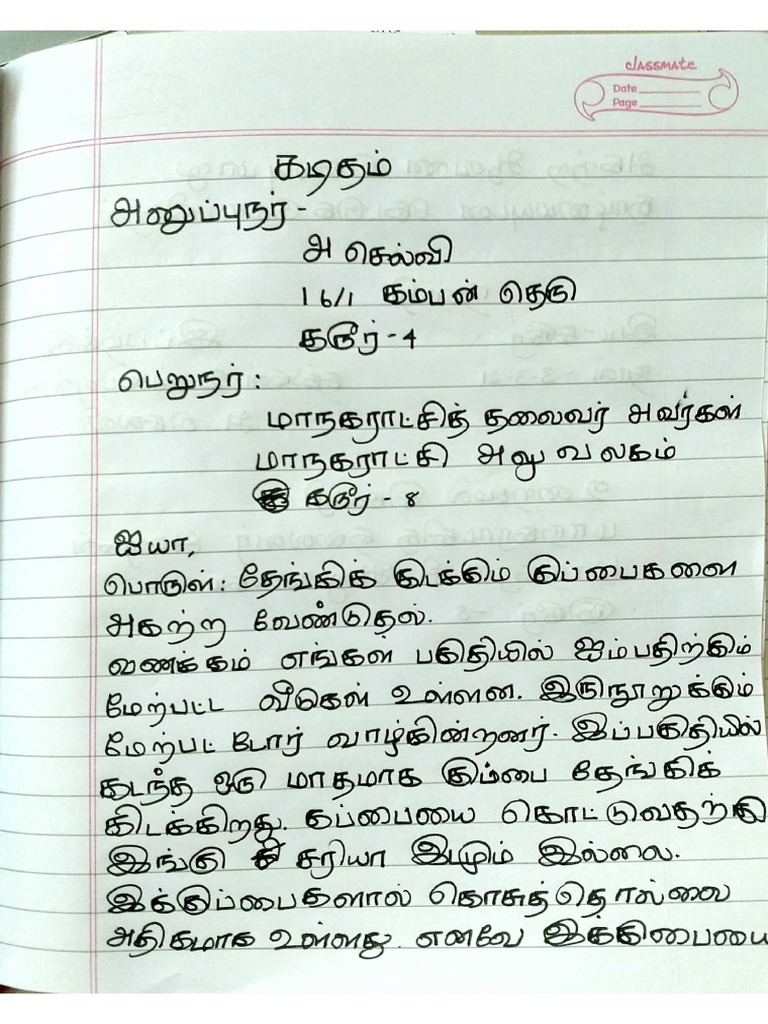 classmate
Date
Page
கடிதம்
அனுப்புநர் -
அ செல்வி
16/1 கம்பன் தெரு
கரூர் - 4
பெறுநர் :
மாநகராட்சித் தலைவர் அவர்கள்
மாநகராட்சி அலுவலகம்
கரூர் - 8
ஐயா,
பொருள் : தேங்கிக் கிடக்கும் குப்பைகளை
அகற்ற வேண்டுதல்.
வணக்கம் எங்கள் பகுதியில் ஐம்பதிற்கும்
மேற்பட்ட வீடுகள் உள்ளன. இருநூறுக்கும்
மேற்பட்டோர் வாழ்கின்றனர். இப்பகுதியில்
கடந்த ஒரு மாதமாக தேங்கிக்
கிடக்கிறது. கப்பையை கொட்டுவதற்கு
இங்கு சரியா இல்லை.
இக்குப்பைகளால் கொசுத்தொல்லை
அதிகமாக உள்ளது. எனவே